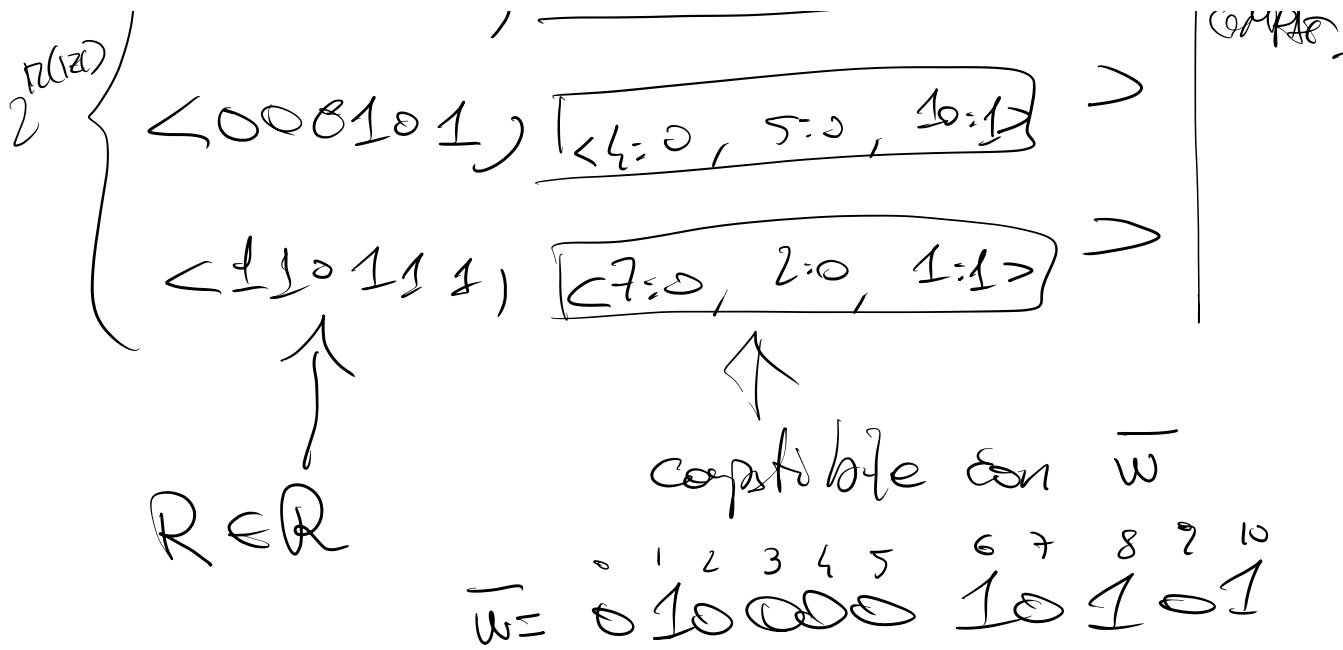 2^{r(|z|)}
<000101, <4:0, 5:0, 10:1> >
<110111, <7:0, 2:0, 1:1> >
compatibile con w̅
R ∈ R
0 1 2 3 4 5 6 7 8 9 10
w̅= 0 1 0 0 0 0 1 0 1 0 1